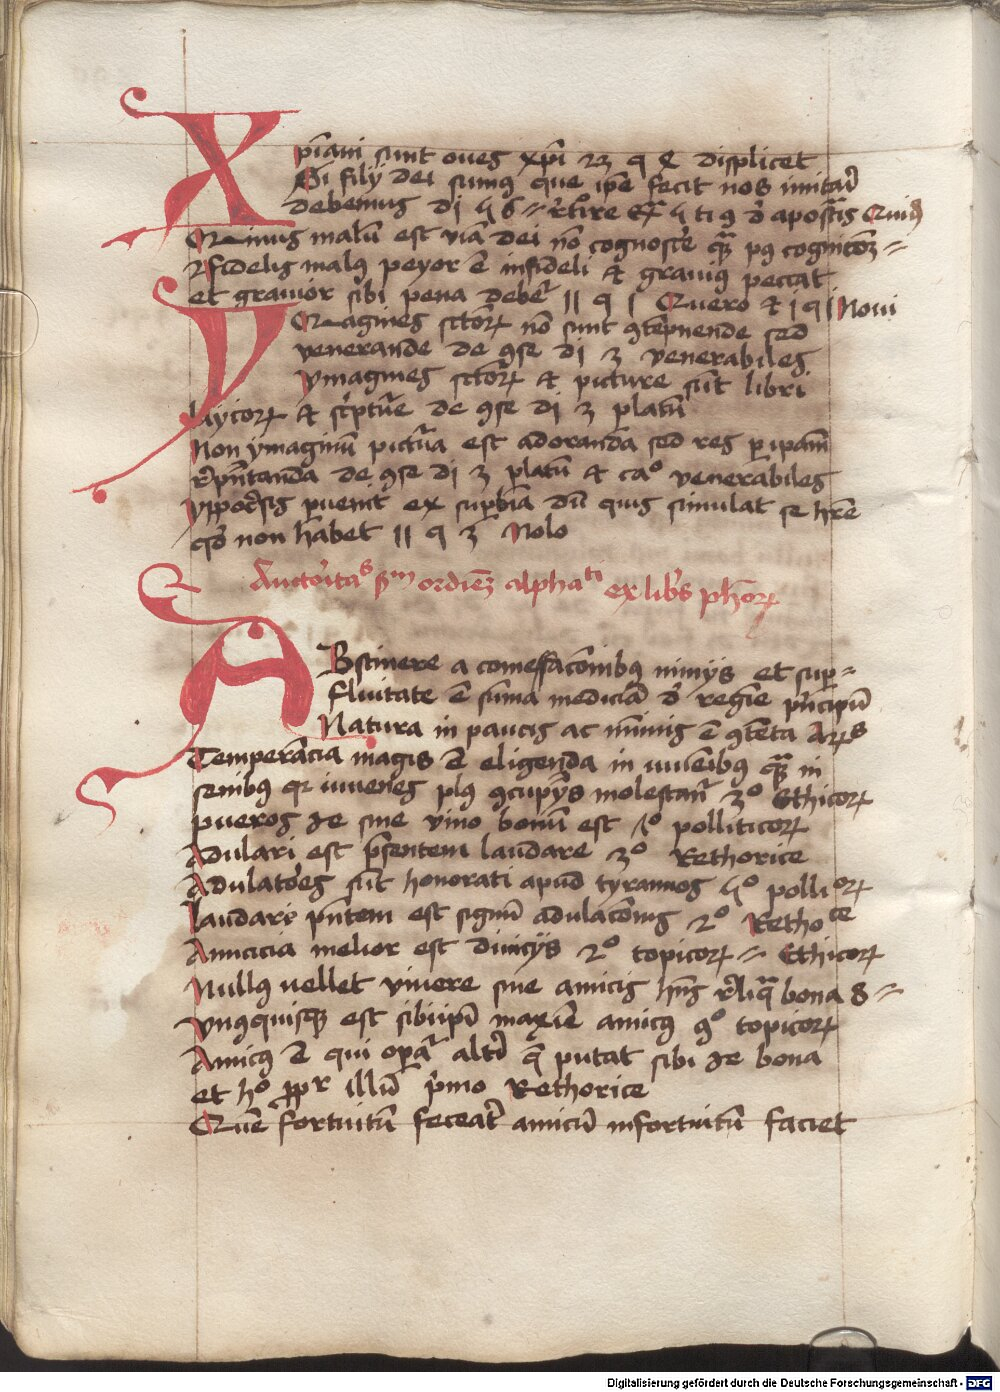 Xpiani sunt oues xpi 23 q displicet
Si filij dei sumus que ipe fecit nos imitari
debemus di
Minus malum est viam dei non cognoscere qm pq cognitam
fidelis malus peyor e infideli et grauius peccat
et grauior sibi pena debet II q I Quero et Noui
YMagines sctorum no sunt contempnende sed
venerande de cose di 3 venerabiles
ymagines sctorum et picture sunt libri
laycorum et scripture de cose di 3 platum
Non ymaginum pictura est adoranda sed res per ipam
representanda de cose di 3 platum et cao venerabiles
ypocrisis puenit ex superbia dum quis simulat se hre
quod non habet II q 3 Nolo
Auctoritas sm ordinem alphati ex libris phorum
ABstinere a comessacionibus nimijs et super=
fluitate e summa medicina de regie principum
Natura in paucis ac minimis e contenta
Temperancia magis e eligenda in iuuenibus quam in
senibus qr iuuenes plus concupiscencijs molestantur 3o Ethicorum
pueros sine vino bonum est pollicicorum
Adulari est presentem laudare 3o Rethorice
Adulatores sunt honorati apud tyrannos 5o pollicorum
laudare pntem est signum adulacionis 2o Rethoce
Amicicia melior est diuicijs 2o topicorum = Ethicorum
Nullus vellet viuere sine amicis hns reliqua bona 8 =
vnusquisque est sibiipi maxime amicus topicorum
Amicus e qui operatur alteri que putat sibi bona
et hoc propter illum primo Rethorice
Quem fortuitum feceat amicum infortuitum faciet
Digitalisierung gefördert durch die Deutsche Forschungsgemeinschaft - DFG